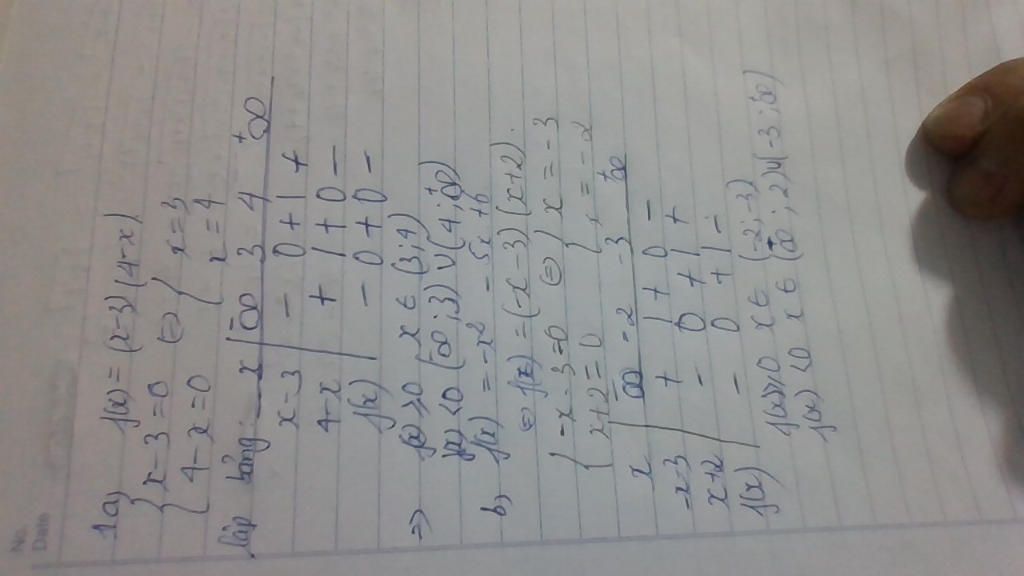 No.
Date
1a, f(x) = (x-3)(4-x)
{ x-3=0 ⇔ { x=3
{ 4-x=0 { x=4
lập bảng:
x | -∞ 3 4 +∞
x-3 | - 0 + | +
4-x | + | + 0 -
f(x) | - 0 + 0 -
=> f(x) ≥ 0 x ∈ (3;4)
f(x) < 0 (-∞;3) ∪ (4;+∞)
b, f(x) = -x² - 5x + 6
⇔ f(x) = (-x-3)(x+2).
{ -x-3=0 ⇔ { x=-3
{ x+2=0 { x=-2
x | -∞ -2 -3 +∞
-x-3 | + | + 0 -
x+2 | - 0 + | +
f(x) | - 0 + | -
f(x) ≥ 0 x ∈ (-2;-3)
f(x) < 0 x ∈ (∞;2) ∪ (-3;+∞)